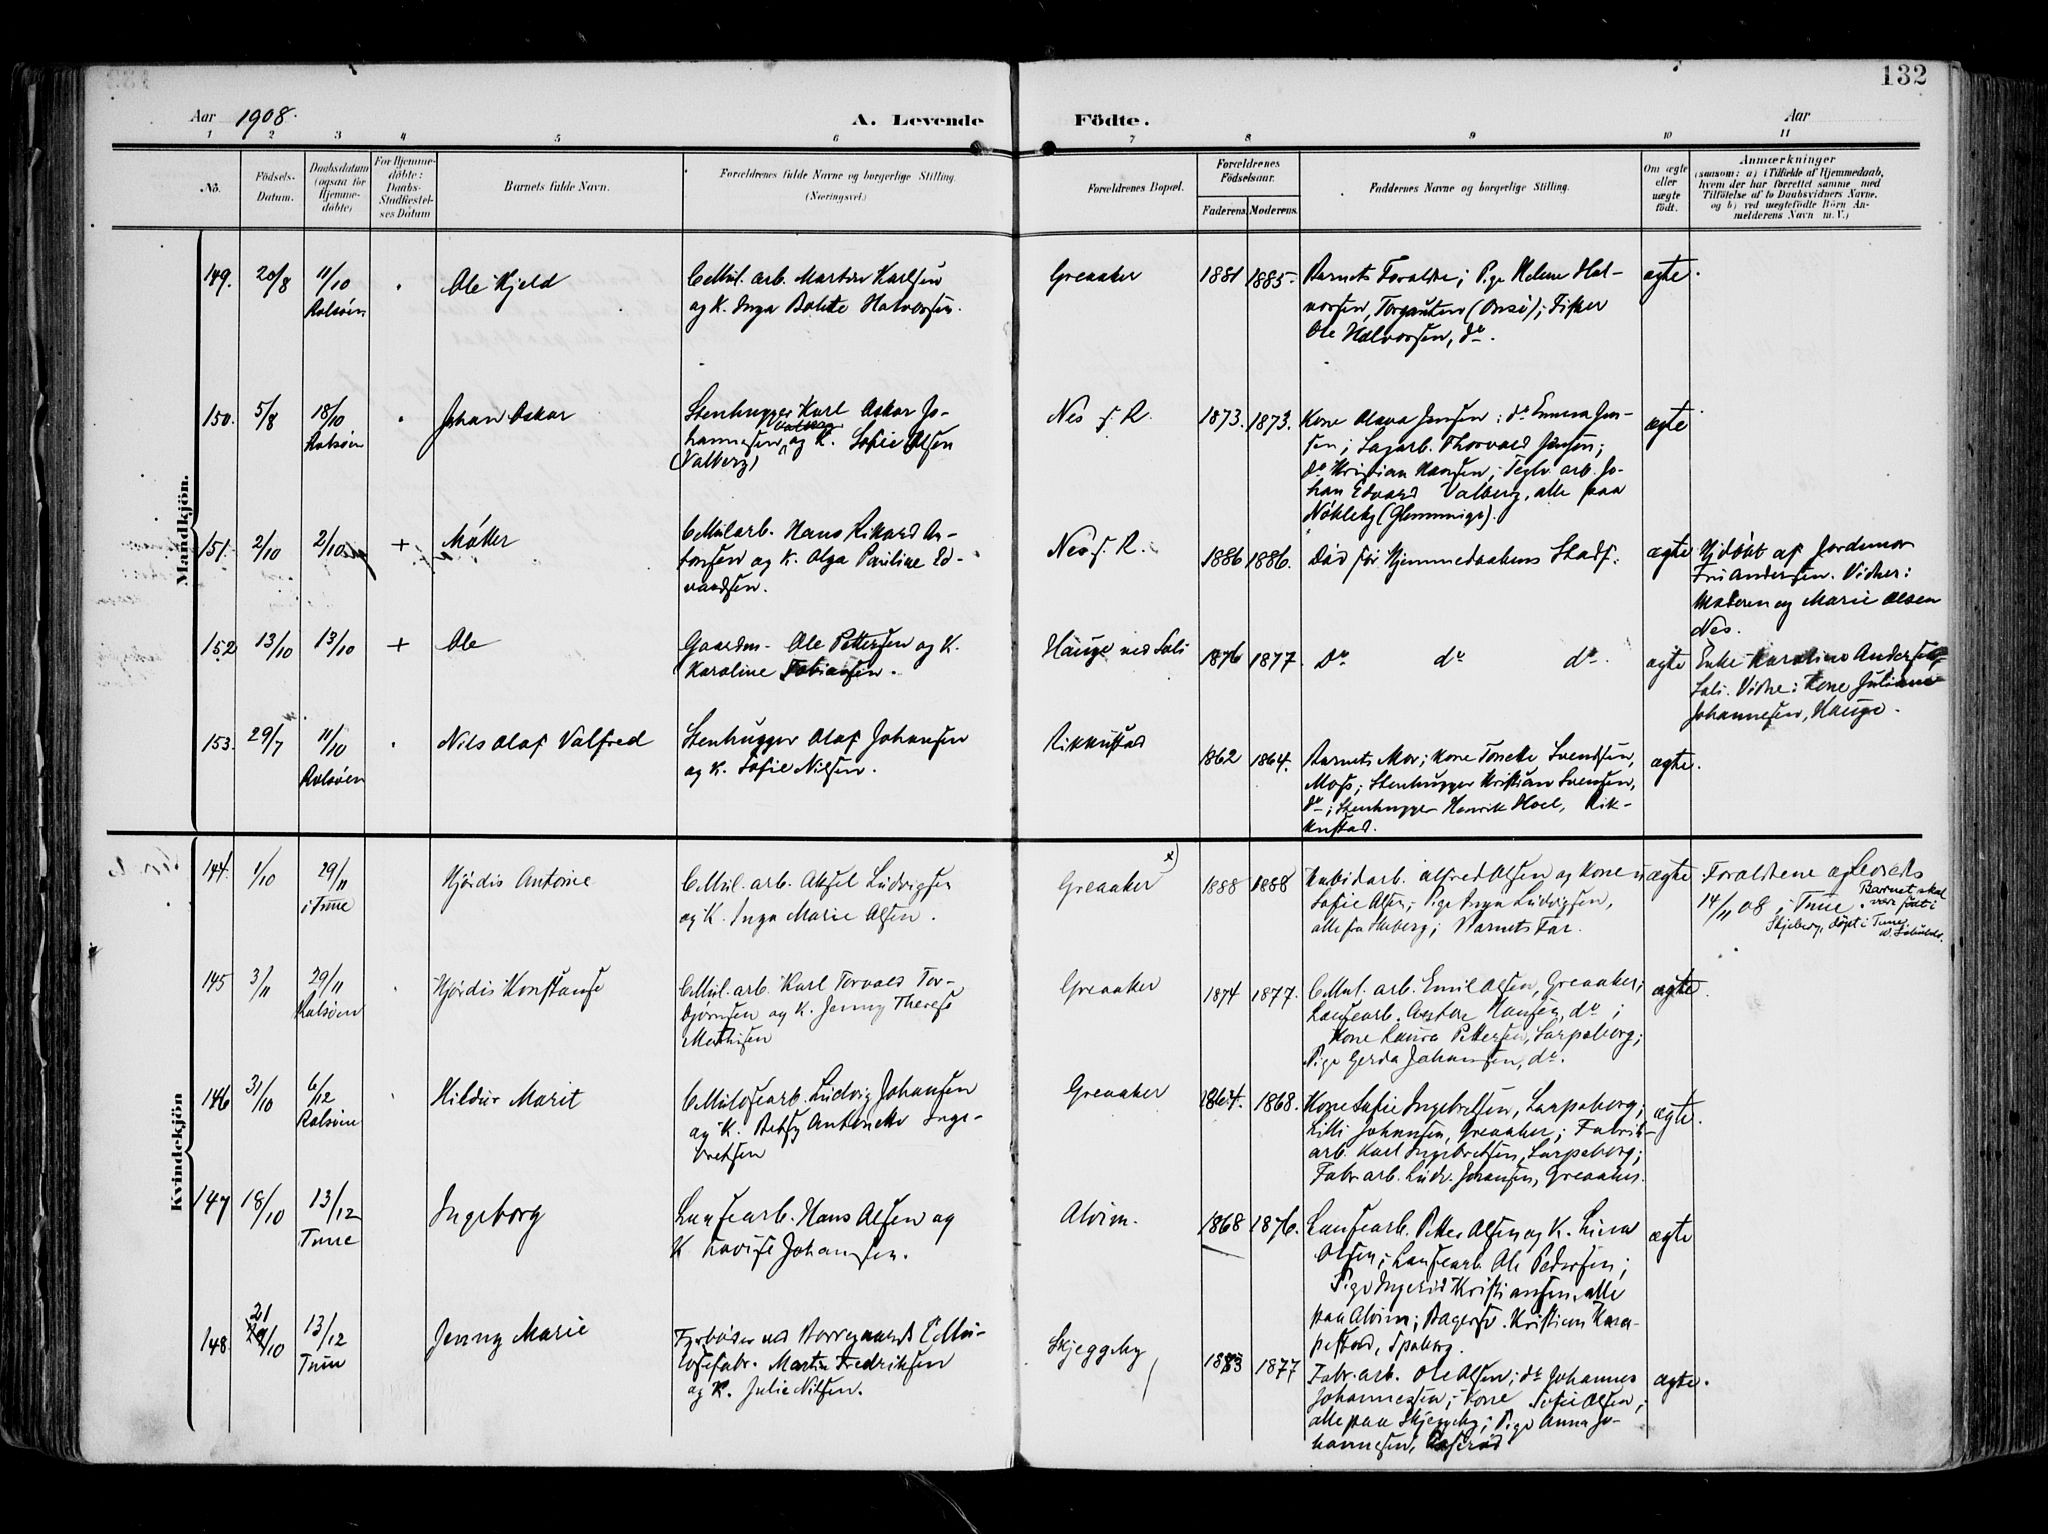 132
Aar 1908.
A. Levende Födte.
Aar
1 2 3 4 5 6 7 8 9 10 11
No.
Födsels-
Datum.
Daabsdatum
(ogsaa for
Hjemme-
döbte)
For Hjemme-
döbte:
Daabs-
Stadfæstel-
ses Datum
Barnets fulde Navn.
Forældrenes fulde Navne og borgerlige Stilling
(Næringsvei.)
Forældrenes Bopæl.
Forældrenes
Födselsaar.
Faderens. Moderens.
Faddernes Navne og borgerlige Stilling.
Om ægte
eller
uægte
födt.
Anmærkninger
(saasom: a) i Tilfælde af Hjemmedaab,
hvem der har forrettet samme med
Tilföielse af to Daabsvidners Navne,
og b) ved uægtefödte Börn An-
melderens Navn m. V.)
Mandkjön.
149. 20/8 11/10
Rolsøen
Ole Kjeld
Cellul. arb. Martin Karlsen
og K. Inga Bolette Halvorsen.
Greaaker
1881 1885.
Barnets Forældre; Pige Helene Hal-
vorsen, Torgauten (Onsö); Fisker
Ole Halvorsen, do.
ægte.
150. 5/8 18/10
Rolsöen
Johan Oskar
Stenhugger Karl Oskar Jo-
hannesen, og K. Sofie Olsen
(Valberg)
Nes s. R.
1873. 1873.
Kone Olava Jensen; do Emma Jen-
sen; Sagarb. Thorvald Jensen;
do Kristian Hansen; Teglv. arb. Jo-
han Edvard Valberg, alle paa
Nökleby (Glemminge).
ægte
151. 2/10 2/10 +
Møller
Cellul arb. Hans Rikard An-
tonsen og K. Olga Pauline Ed-
vardsen.
Nes s. R.
1886 1886.
Död før Hjemmedaabens Stadf.
ægte
Hjdöbt af Jordemor
Fru Andersen. Vidner:
Moderen og Marie Olsen
Nes.
152 13/10 13/10 +
Ole
Gaardm. Ole Pettersen og K.
Karoline Tobiassen.
Hauge ved Soli
1876 1877.
Do do do.
ægte
Enke Karoline Andersen
Soli. Vidne: Kone Juliane
Johannesen, Hauge.
153. 29/7 11/10
Rolsöen
Nils Olaf Valfred
Stenhugger Olaf Johansen
og K. Sofie Nilsen.
Rikkustad
1862 1864.
Barnets Mor; Kone Svendsen,
Moss; Stenhugger Kristian Svensen,
do; Stenhugger Henrik Hoel, Rik-
kustad.
ægte.
Kvindekjön
144. 1/10 29/11
i Tune
Hjördis Antonie
Cellul. arb. Aksel Ludvigsen
og K. Inga Marie Olsen.
Greaaker x)
1888 1888
Karbidarb. Alfred Olsen og Kone
Sofie Olsen; Pige Inga Ludvigsen,
alle fra Hheberg; Barnets Far.
ægte.
Forældrene
14/11 08 i Tune. Barnet skal
være født i
Skjeberg, döpt i Tune
145 3/11 29/11
Rolsöen
Hjördis Konstanse
Cellul. arb. Karl Torvald Tor-
bjørnsen og K. Jenny Therese
Mathisen
Greaaker
1874 1877.
Cellul. arb. Emil Olsen, Greaaker;
Landsearb. Hansen, do;
Kone Laura Pettersen, Sarpsborg;
Pige Gerda Johansen, do.
ægte.
146 31/10 6/12
Rolsöen
Hildur Marit
Cellulosearb. Ludvig Johansen
og K. Betsy Antonette Inge-
bretsen
Greaaker
1864. 1868.
Kone Sofie Ingebretsen, Sarpsborg;
Lilli Johansen, Greaaker; Fabrik-
arb. Karl Ingebretsen, Sarpsborg;
Fabr. arb. Ludv. Johansen, Greaaker.
ægte.
147 18/10 13/12
Tune
Ingeborg
Lansearb. Hans Olsen og
K Lovise Johansen.
Alvim.
1868 1876.
Lansearb. Petter Olsen og K. Lina
Olsen; Lansearb. Ole Pedersen;
Pige Ingerid Kristiansen, alle
paa Alvim; Bagersv. Kristian
Spsborg.
ægte
148. 21/10 13/12
Tune
Jenny Marie
Fyrböder ved Borregaard Cellu-
losefabr. Martin Fredriksen
og K. Julie Nilsen.
Skjeggeby
1883 1877
Fabr. arb. Ole Olsen; do Johannes
Johannessen; Kone Sofie Olsen,
alle paa Skjeggeby; Pige Anna Jo-
hannesen,
ægte.